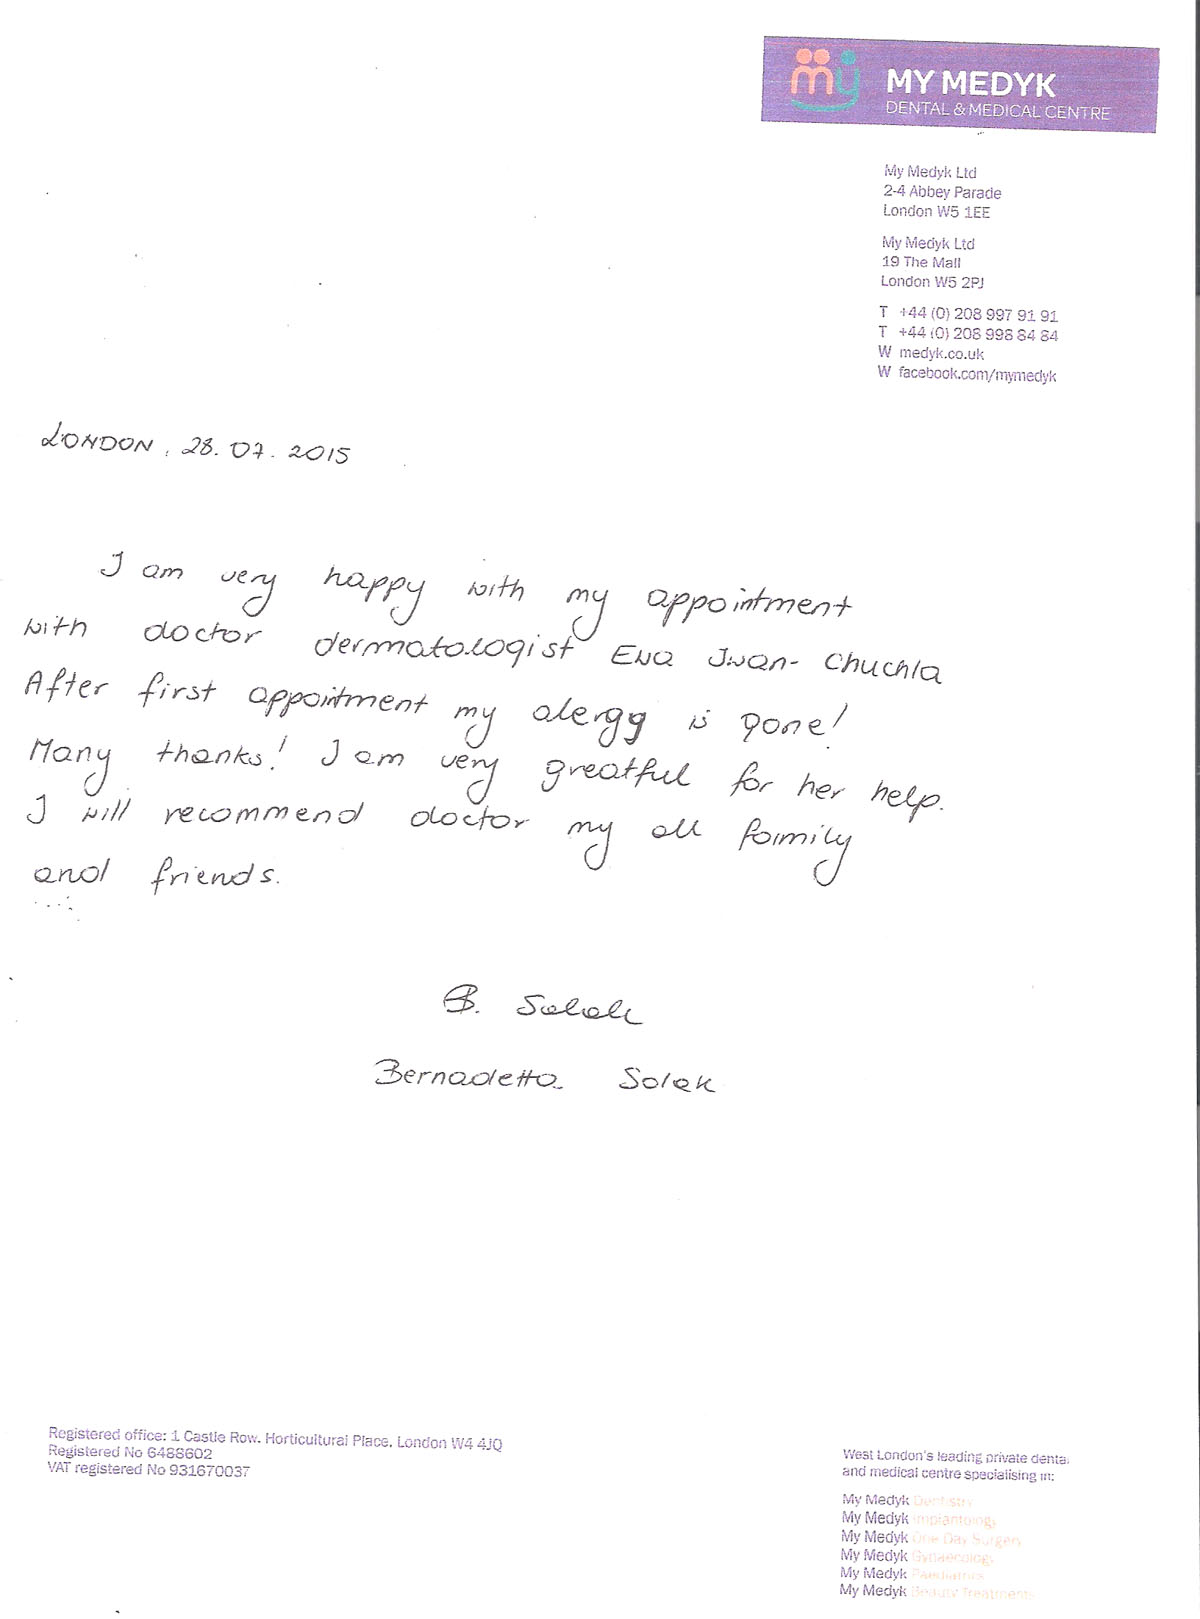 my MY MEDYK
DENTAL & MEDICAL CENTRE
My Medyk Ltd
2-4 Abbey Parade
London W5 1EE
My Medyk Ltd
19 The Mall
London W5 2PJ
T +44 (0) 208 997 91 91
T +44 (0) 208 998 84 84
W medyk.co.uk
W facebook.com/mymedyk
LONDON, 28.07.2015
I am very happy with my appointment
with doctor dermatologist Ewa Iwan-Chuchla
After first appointment my alergy is gone!
Many thanks! I am very greatful for her help.
I will recommend doctor my all faimily
and friends.
B. Solak
Bernadetta Solak
Registered office: 1 Castle Row, Horticultural Place, London W4 4JQ
Registered No 6488602
VAT registered No 931670037
West London's leading private dental
and medical centre specialising in:
My Medyk Dentistry
My Medyk Implantology
My Medyk One Day Surgery
My Medyk Gynaecology
My Medyk Paediatrics
My Medyk Beauty Treatments